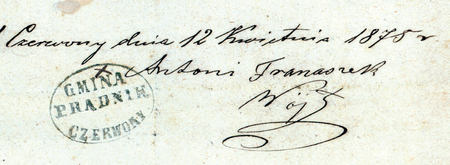 Czerwony dnia 12 Kwietnia 1875 r
Antoni Franaszek
Wójt
GMINA
PRADNIK
CZERWONY